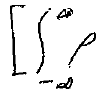 [ ∫_{-∞}^{∞} ρ